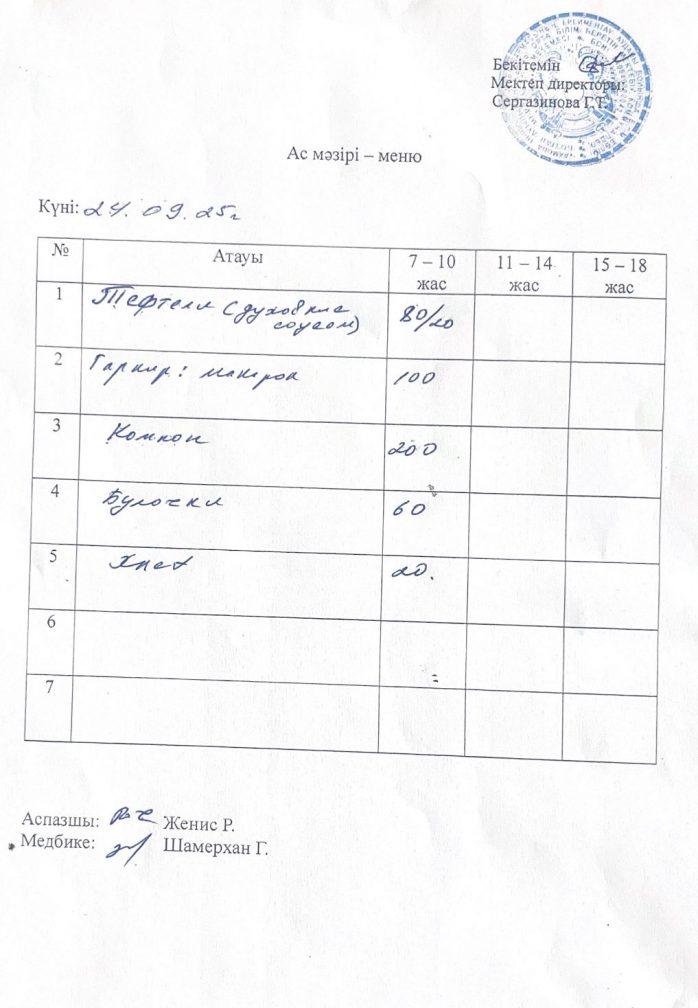 Бекітемін
Мектеп директоры:
Сергазинова Г.Т.
Ас мәзірі – меню
Күні: 24. 09. 25г
№ Атауы 7 – 10 жас 11 – 14 жас 15 – 18 жас
1 Тефтели (духовкие соусом) 80/20
2 Гарнир: макарон 100
3 Компот 200
4 Булочки 60
5 Хлеб 20.
6
7
Аспазшы: Женис Р.
Медбике: Шамерхан Г.